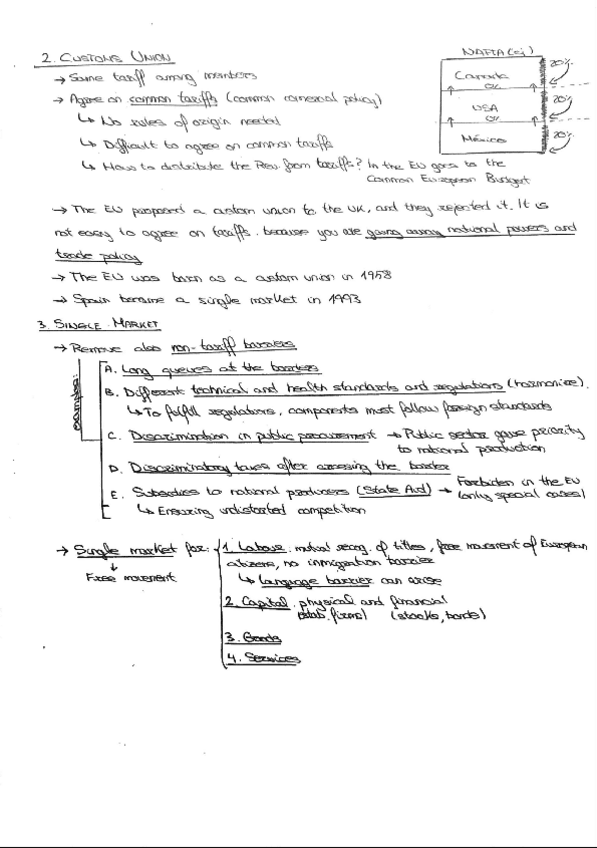 2. CUSTOMS UNION
→ Same tariff among members
→ Agree on common tariffs (common comercial policy)
↳ No rules of origin needed
↳ Difficult to agree on common tariffs
↳ How to distribute the Rev. from tariffs? In the EU goes to the
Common European Budget
NAFTA (ej)
Canada
20%
0%
USA
20%
0%
México
20%
→ The EU proposed a custom union to the UK, and they rejected it. It is
not easy to agree on tariffs. because you are giving away national powers and
trade policy
→ The EU was born as a custom union in 1958
→ Spain became a single market in 1993
3. SINGLE MARKET
→ Remove also non-tariff barriers
examples:
A. Long queues at the borders
B. Different technical and health standards and regulations (harmonize).
↳ To fulfill regulations, components must follow foreign standards
C. Discrimination in public procurement → Public sector gave priority
to national production
D. Discriminatory taxes after crossing the border
E. Subsidies to national producers (State Aid) → Forbidden in the EU
(only special cases)
↳ Ensuring undistorted competition
→ Single market for:
↓
Free movement
1. Labour. mutual recog. of titles, free movement of European
citizens, no inmigration barrier
↳ Language barrier can arise
2. Capital. physical and financial
(estab. firms) (stocks, bonds)
3. Goods
4. Services